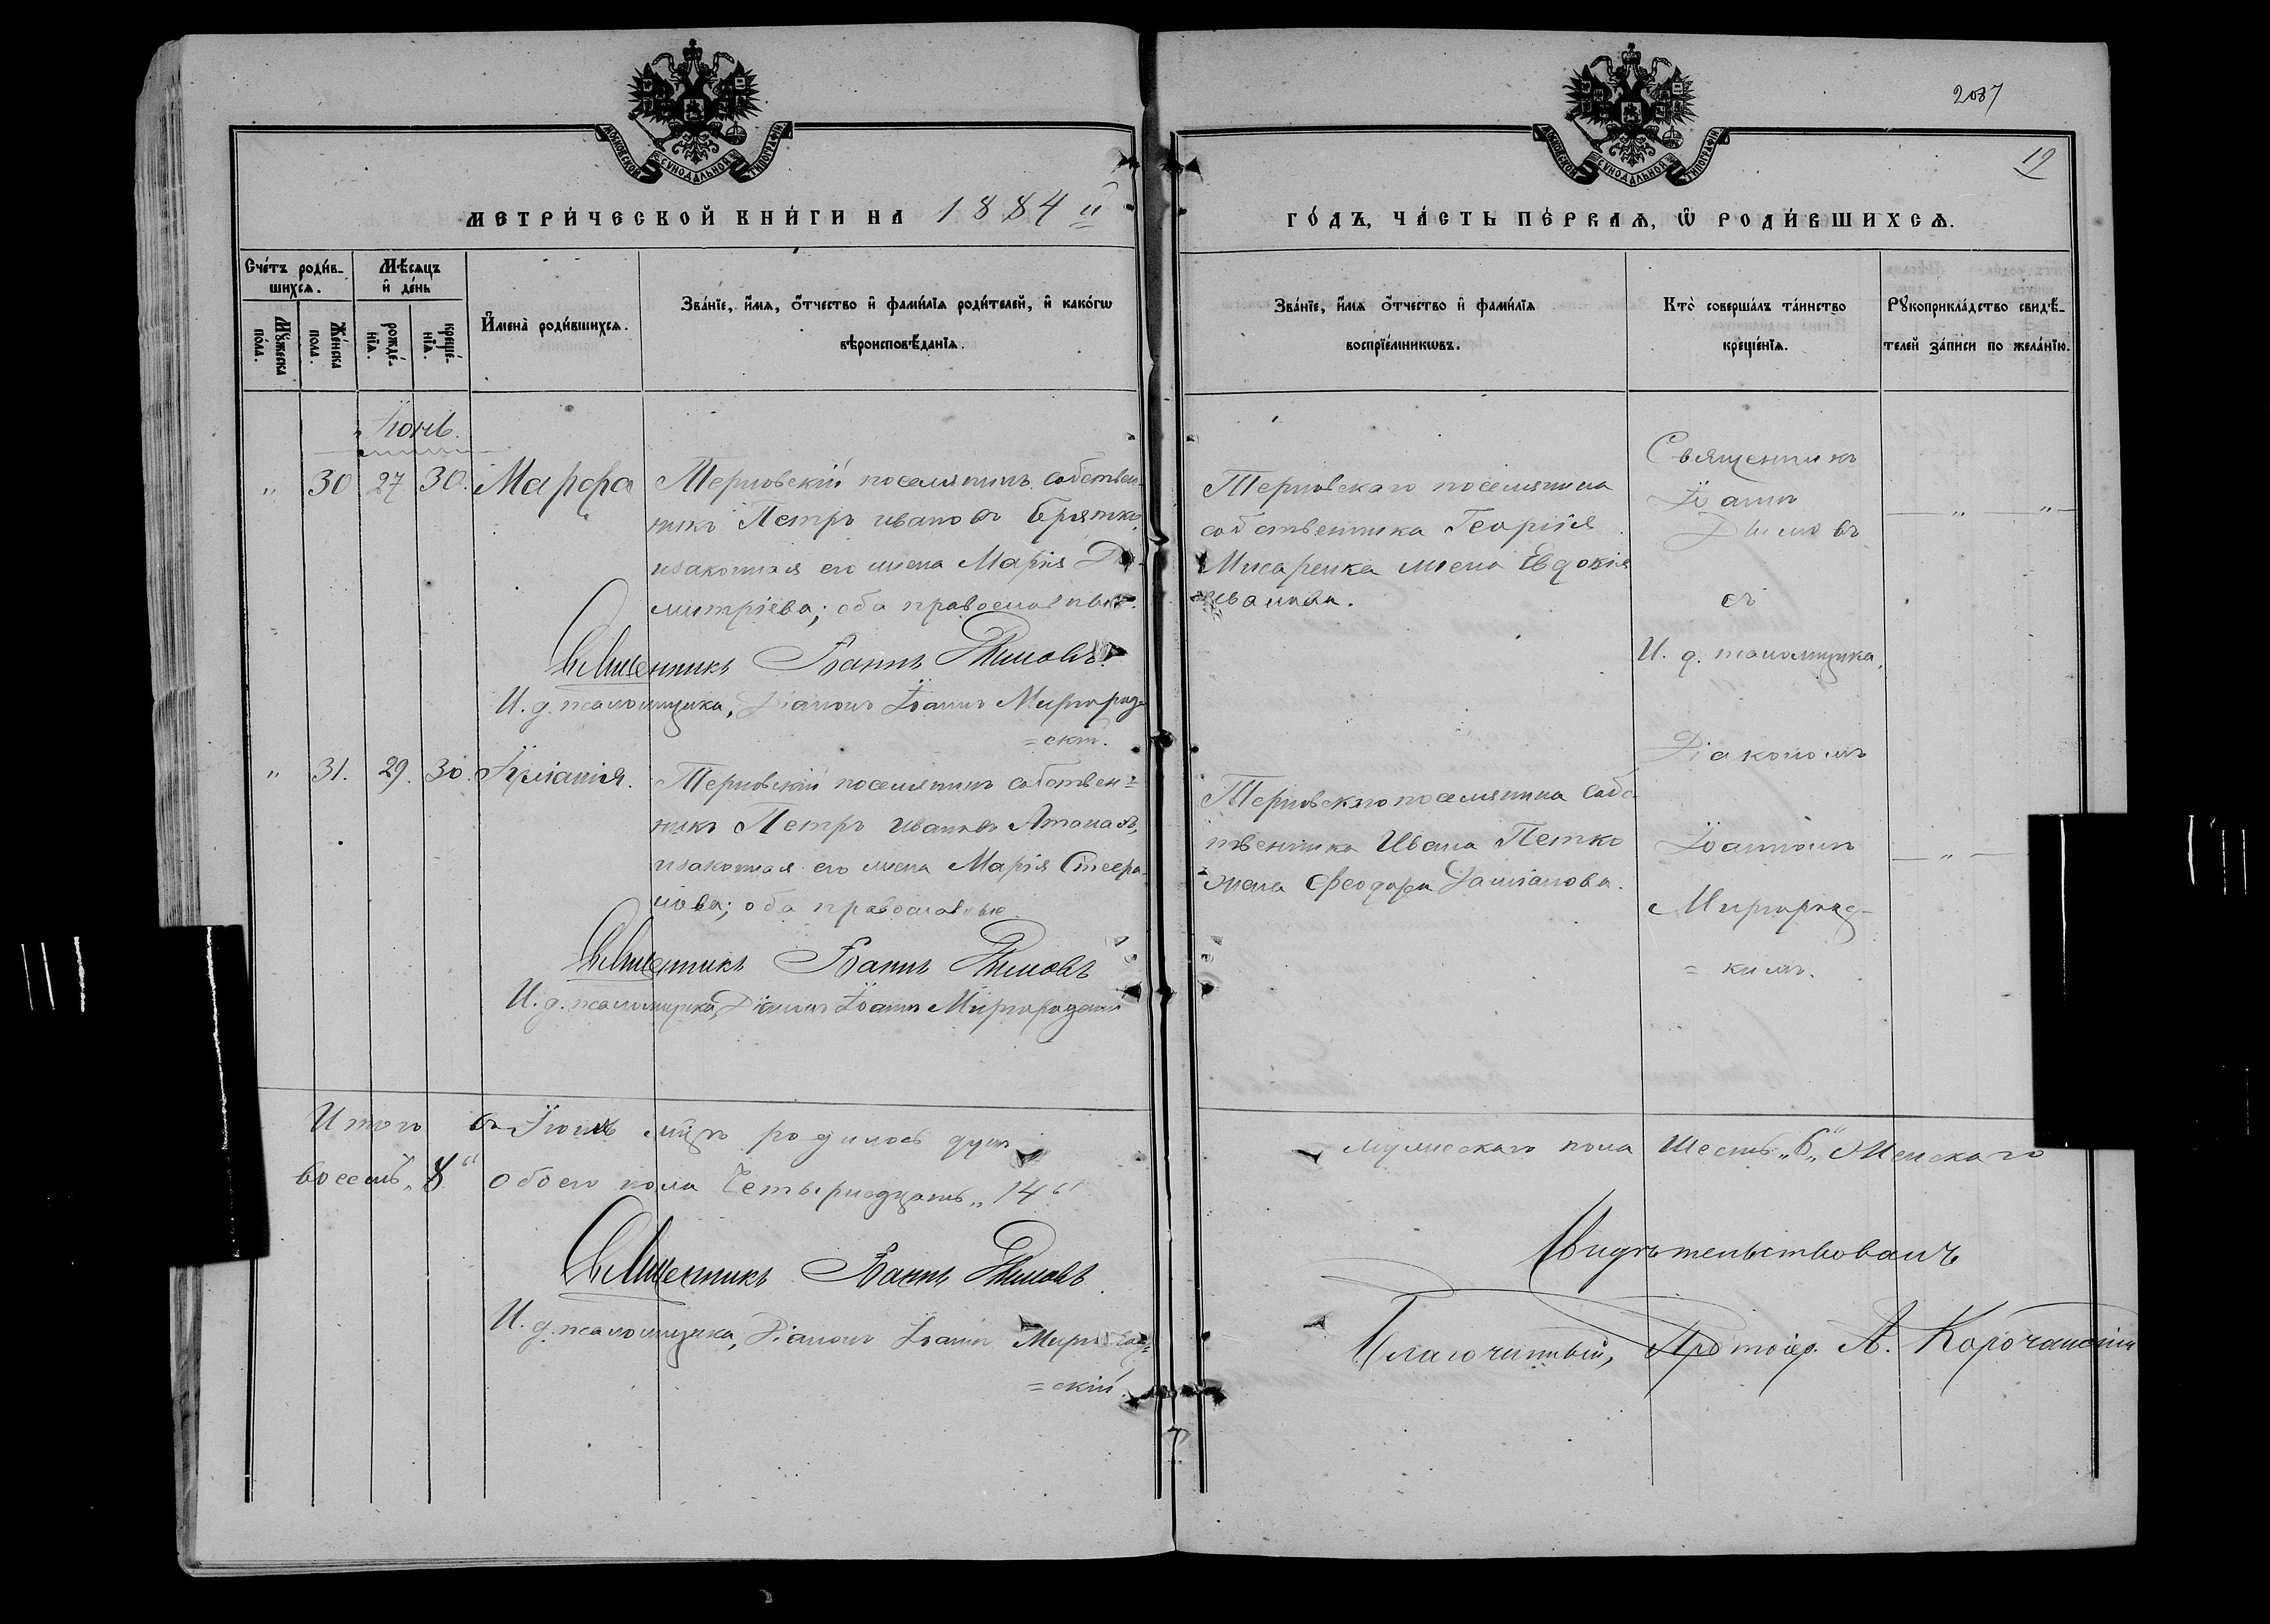 2087
19
МОСКОВСКОЙ СѴНОДАЛЬНОЙ ТИПОГРАФІИ
МОСКОВСКОЙ СѴНОДАЛЬНОЙ ТИПОГРАФІИ
МЕТРИ́ЧЕСКОЙ КНИ́ГИ НА 1884й
ГО́ДЪ, ЧА́СТЬ ПЕ́РВАѦ, Ѡ РОДИ́ВШИХСѦ.
Сче́тъ роди́в-
шихсѧ.
Мꙋ́жеска по́ла.
Же́нска пола.
Мѣ́сѧцъ
и҆ де́нь
рожде́-нїѧ.
креще́-нїѧ.
И҆мена̀ роди́вшихсѧ.
Зва́нїе, и҆́мѧ, ѻ҆́тчество и҆ фами́лїѧ роди́телей, и҆ како́гѡ
вѣроисповѣ́данїѧ.
Зва́нїе, и҆́мѧ ѻ҆́тчество и҆ фами́лїѧ
воспрїе́мникѡвъ.
Кто̀ соверша́лъ та́инство
креще́нїѧ.
Рꙋкоприкла́дство свидѣ́-
телей за́писи по жела́нїю.
Іюнь.
" 30 27 30. Марфа
Терновскій поселянинъ собствен-
никъ Петръ Ивановъ
изаконная его жена Марія Ди-
митріева; оба православные.
Священникъ Іоаннъ Димовъ.
И. д. псаломщика, Діаконъ Іоаннъ Миргород=
=скій.
Терновскаго поселянина
собственника Георгія
Писаренка жена Евдокія
Иванова.
Священникъ
Іоаннъ
Димовъ
съ
И. д. псаломщика,
Діакономъ
Іоанномъ
Миргород-
= кимъ.
" 31. 29. 30. Іуліанія.
Терновскій поселянинъ собствен=
никъ Петръ Ивановъ Атанасовъ,
изаконная его жена Марія Стефа-
нова; оба православные.
Священникъ Іоаннъ Димовъ
И. д. псаломщика, Діаконъ Іоаннъ Миргородскій
Терновскаго поселянина собс-
твенника Ивана Петко
жена Феодора Даміанова.
Итого въ Іюнѣ мцѣ родилось душъ
мужескаго пола Шесть „6„ Женскаго
восемь „8“ обоего пола Четырнадцать „14“
Священникъ Іоаннъ Димовъ.
И. д. псаломщика, Діаконъ Іоаннъ Миргород=
=скій.
Свидѣтельствовалъ
Благочинный, Протоіер. А. Корочанскій